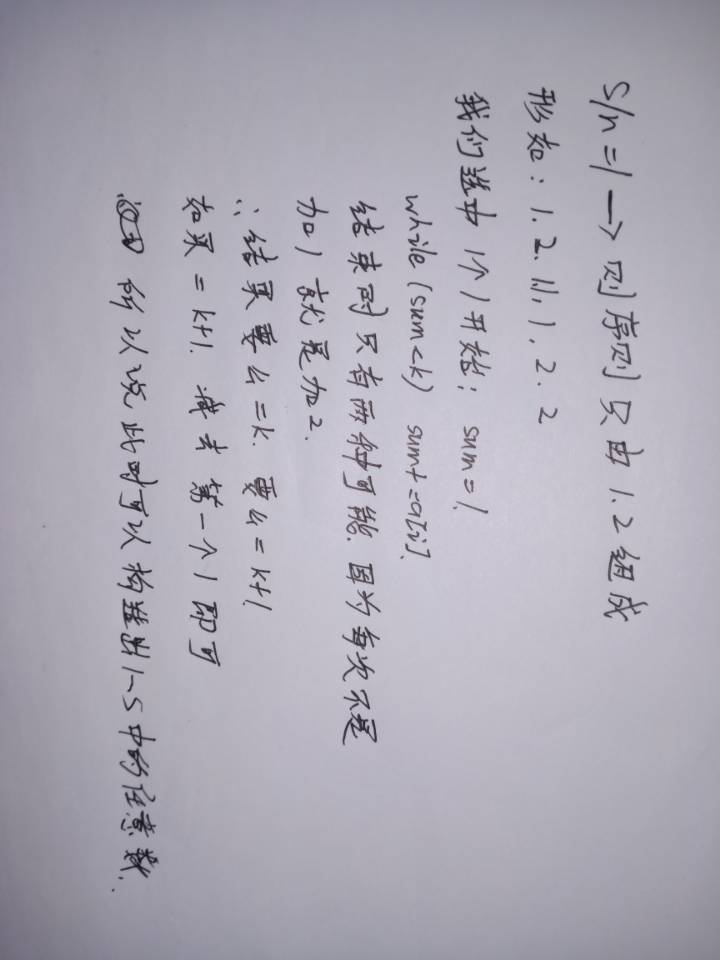 S/n=1 → 则序则只由1.2组成
形如：1.2.1,1,1,2.2
我们选中1个1开始； sum=1.
while (sum<k) sum+=a[i].
结束时只有两种可能.因为每次不是
加1就是加2.
∴结果要么=k.要么=k+1.
如果=k+1.减去第一个1即可
所以说此时可以构造出1~S中的任意数.